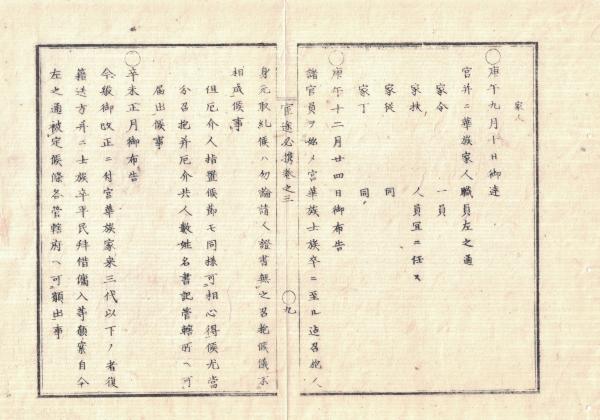 家人
〇庚午九月十日御達
官并ニ華族家人職員左之通
家令　一員
家扶　人員宜ニ任ス
家従　同
家丁　同
〇庚午十二月廿四日御布告
諸官員ヲ始メ官華族士族卒ニ至ル迄召抱人
官途必携巻之三　〇九
身元取糺候ハ勿論請人證書無之召抱候儀不
相成候事
但厄介人指置候節モ同様可相心得候尤当
分召抱并厄介共人数姓名書記管轄所ヘ可
届出候事
〇辛未正月御布告
今般御改正ニ付官華族家来三代以下ノ者復
籍送方并ニ士族卒平民拝借傭入等願案自今
左之通被定候條各管轄府ヘ可願出事